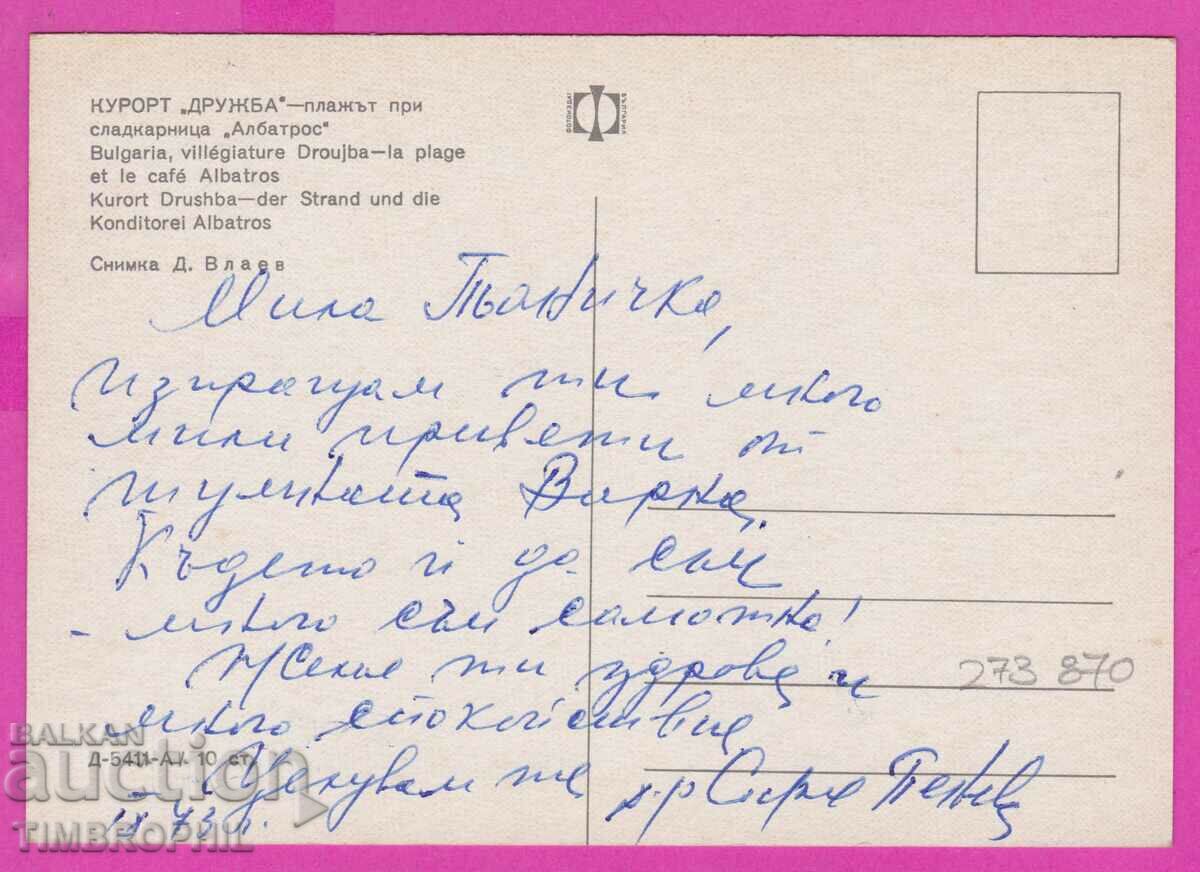 КУРОРТ „ДРУЖБА“—плажът при
сладкарница „Албатрос“
Bulgaria, villégiature Droujba—la plage
et le café Albatros
Kurort Drushba—der Strand und die
Konditorei Albatros
Снимка Д. Влаев
ФОТОИЗДАТ
БЪЛГАРИЯ
Мила
изпращам ти много
мили привети от
шумната Варна.
Където и да съм
- много съм самотна!
Желая ти здраве и
много спокойствие
Целувам те
IX 73 г.
273 870
Д-5411-А/. 10 ст.
BALKAN
auction
TIMBROPHIL